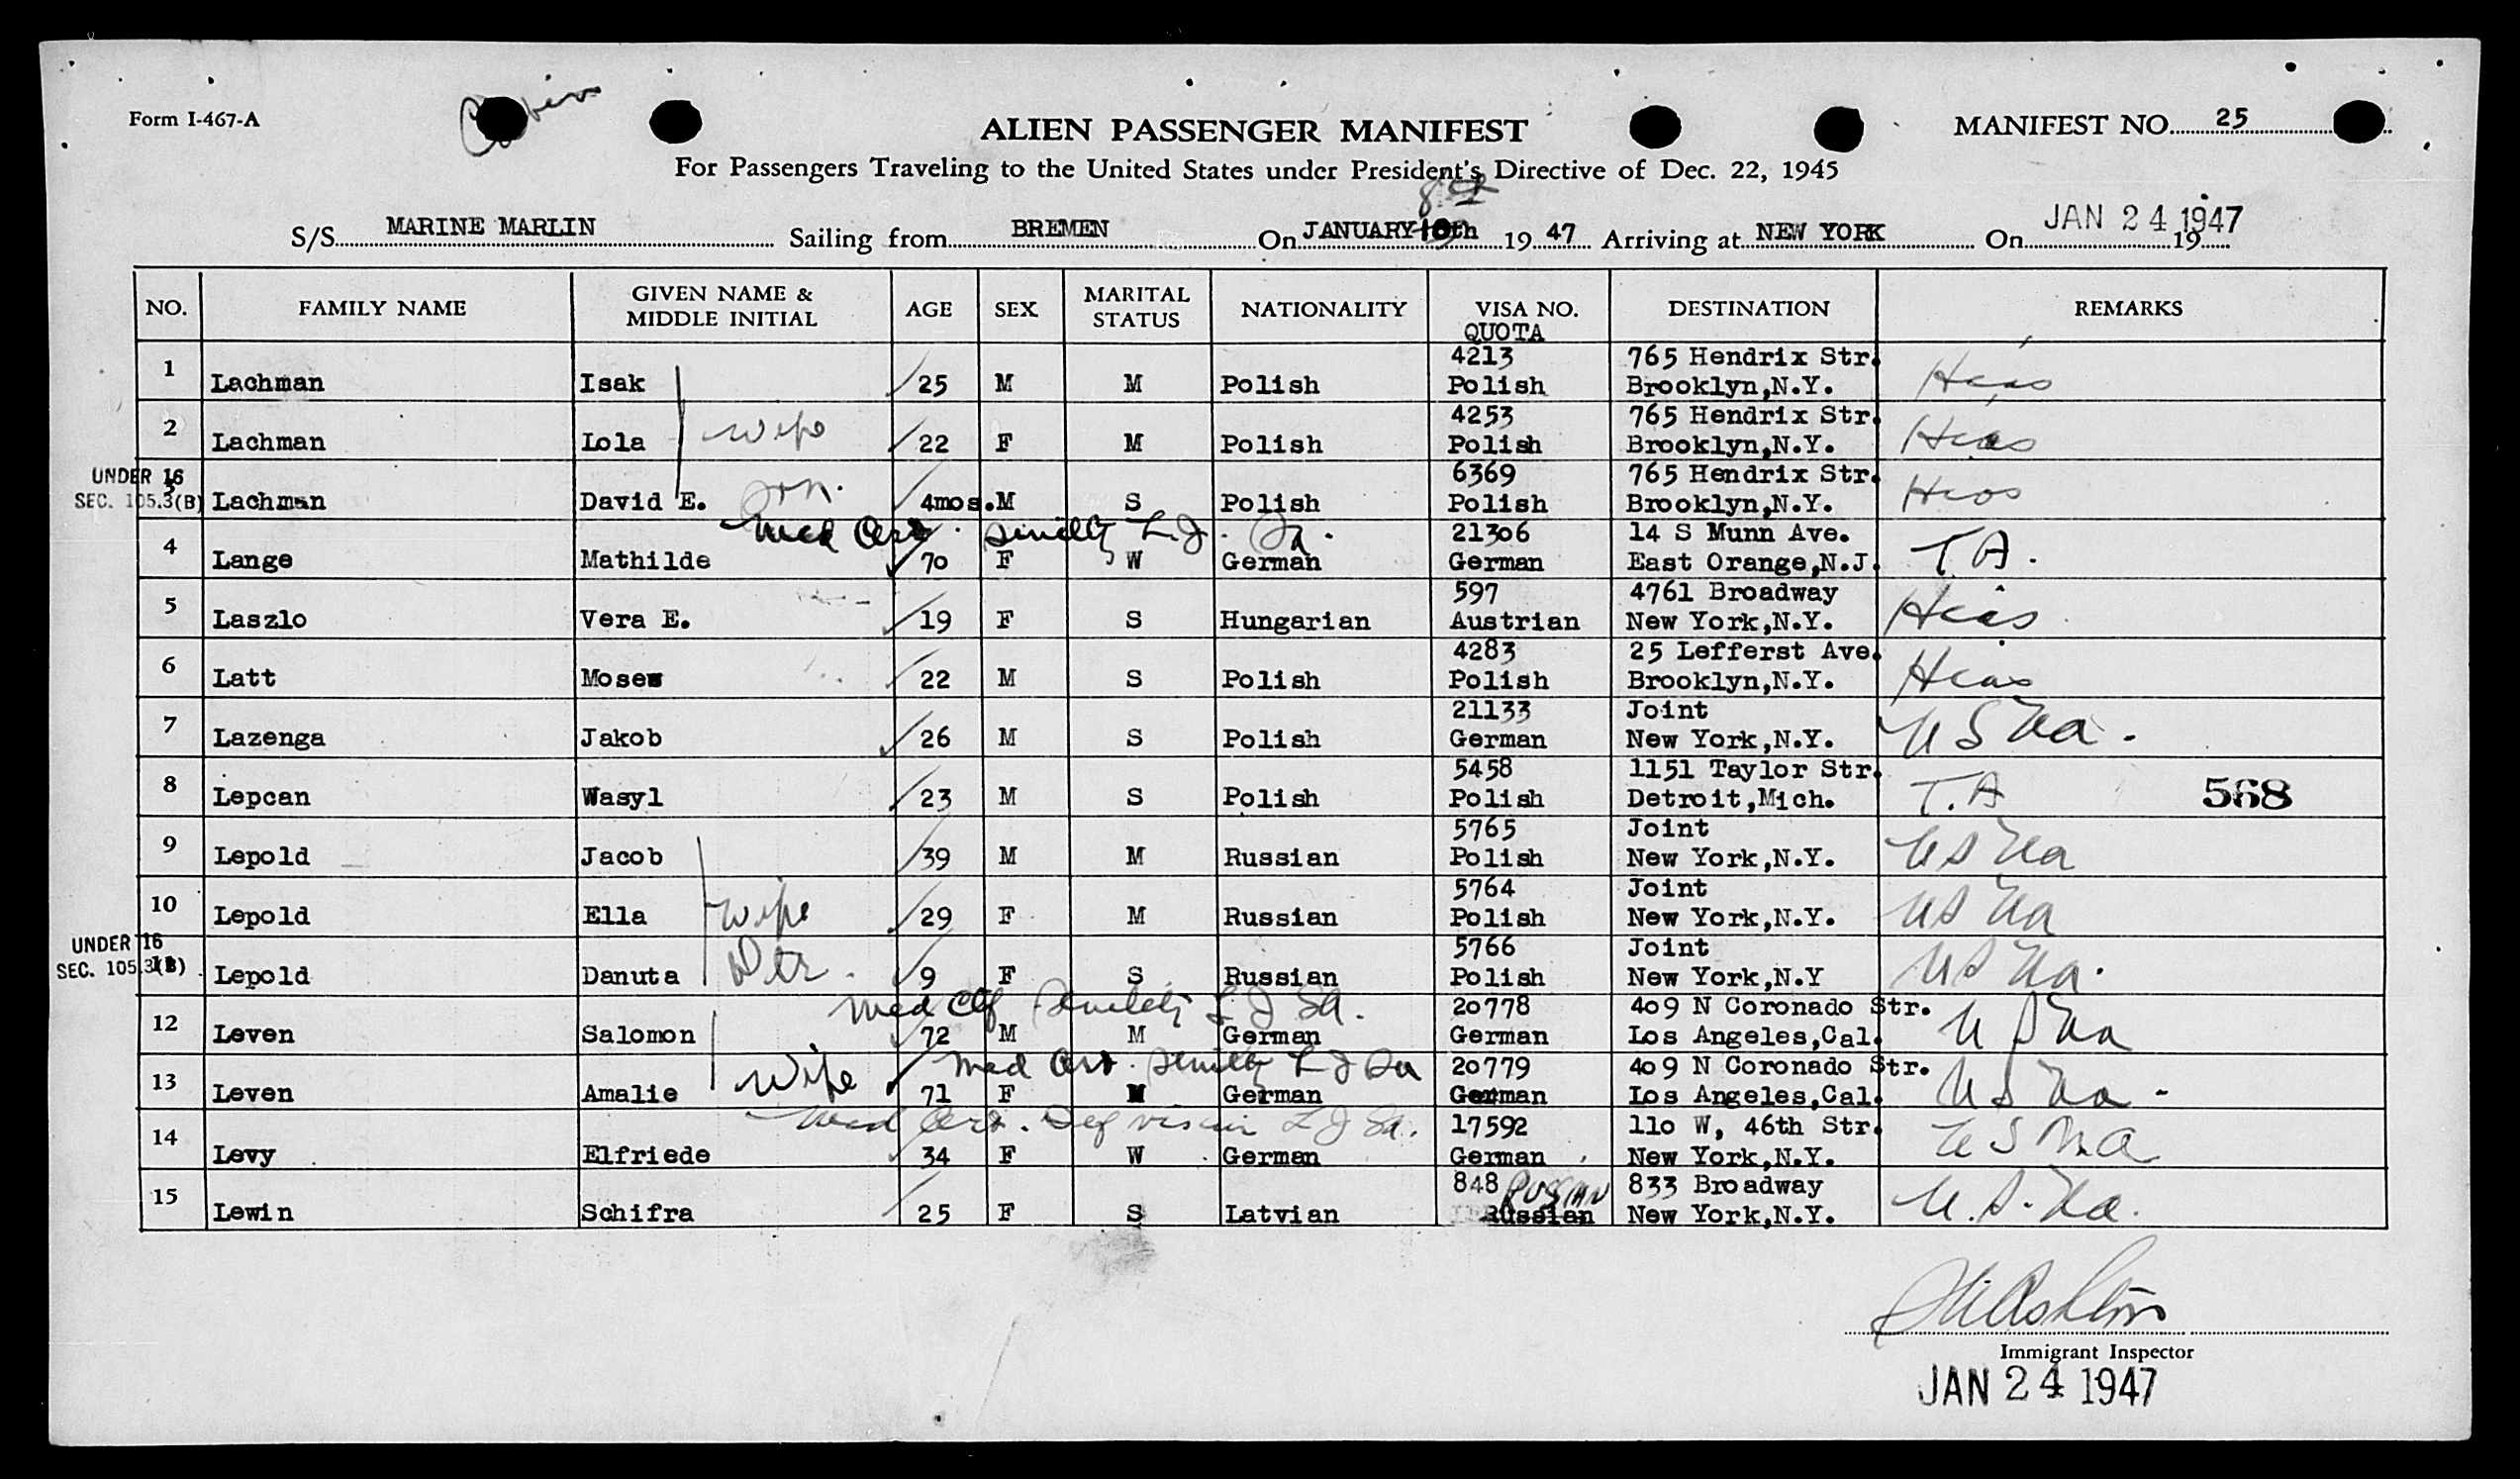 Form I-467-A
ALIEN PASSENGER MANIFEST
MANIFEST NO. 25
For Passengers Traveling to the United States under President's Directive of Dec. 22, 1945
8th
S/S MARINE MARLIN Sailing from BREMEN On JANUARY 10th 19 47 Arriving at NEW YORK On JAN 24 1947 19
NO. FAMILY NAME GIVEN NAME & MIDDLE INITIAL AGE SEX MARITAL STATUS NATIONALITY VISA NO. QUOTA DESTINATION REMARKS
4213 765 Hendrix Str.
1 Lachman Isak 25 M M Polish Polish Brooklyn,N.Y. Hias
4253 765 Hendrix Str.
2 Lachman Lola wife 22 F M Polish Polish Brooklyn,N.Y. Hias
UNDER 16 6369 765 Hendrix Str.
SEC. 105.3(B) 3 Lachman David E. son. 4mos. M S Polish Polish Brooklyn,N.Y. Hias
Med Cert. Senility L.J. Sa. 21306 14 S Munn Ave.
4 Lange Mathilde 70 F W German German East Orange,N.J. T.A.
597 4761 Broadway
5 Laszlo Vera E. 19 F S Hungarian Austrian New York,N.Y. Hias
4283 25 Lefferst Ave.
6 Latt Moses 22 M S Polish Polish Brooklyn,N.Y. Hias
21133 Joint
7 Lazenga Jakob 26 M S Polish German New York,N.Y. U S Na.
5458 1151 Taylor Str.
8 Lepcan Wasyl 23 M S Polish Polish Detroit,Mich. T.A 568
5765 Joint
9 Lepold Jacob 39 M M Russian Polish New York,N.Y. U S Na
5764 Joint
10 Lepold Ella wife 29 F M Russian Polish New York,N.Y. U S Na
UNDER 16 5766 Joint
SEC. 105.3(B) 11 Lepold Danuta Dtr. 9 F S Russian Polish New York,N.Y U S Na.
Med Ctf Senility L J Sa. 20778 409 N Coronado Str.
12 Leven Salomon 72 M M German German Los Angeles,Cal. U S Na
Med Cert. Senility L J Sa 20779 409 N Coronado Str.
13 Leven Amalie Wife 71 F M German German Los Angeles,Cal. U S Na
Med Cert. Def vision L J Sa. 17592 110 W, 46th Str.
14 Levy Elfriede 34 F W German German New York,N.Y. U S Na
848 RUSSIAN 833 Broadway
15 Lewin Schifra 25 F S Latvian Russian New York,N.Y. U.S. Na.
Immigrant Inspector
JAN 24 1947